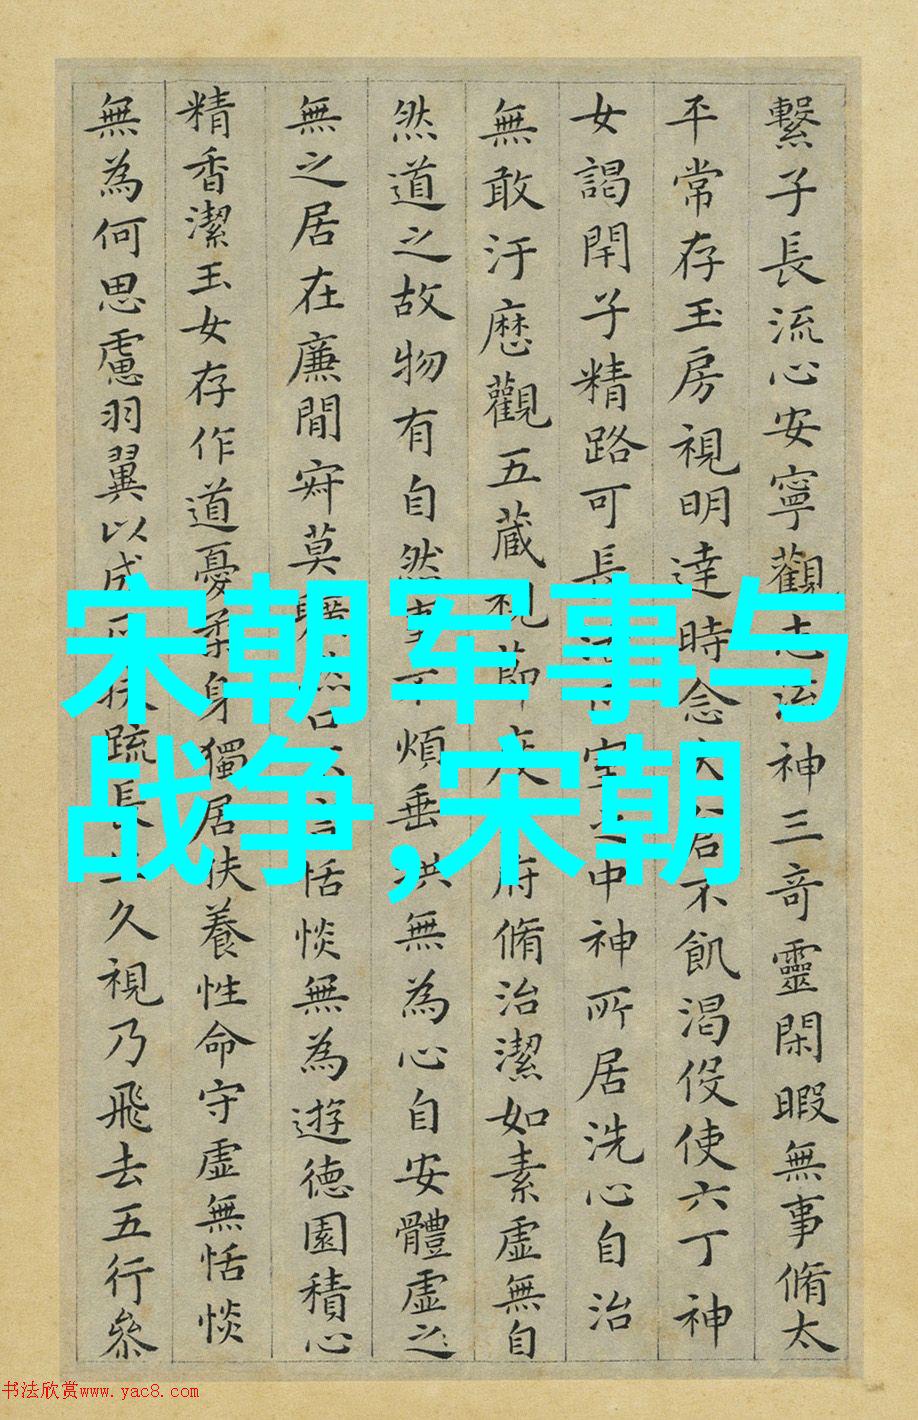 繫子長流心安寧觀志流神三奇靈閑暇無事脩太
平常存玉房視明達時念大倉不飢渴役使六丁神
女謁閇子精路可長活正室之中神所居洗心自治
無敢汙歷觀五藏視節度六府脩治潔如素虛無自
然道之故物有自然事不煩垂拱無為心自安體虛之
無之居在廉間寂莫曠然口不言恬惔無為遊德園積心
精香潔玉女存作道憂柔身獨居扶養性命守虛無恬惔
無為何思慮羽翼以成正扶疏長生久視乃飛去五行參
宋朝军事与
战争,宋朝
书法欣赏www.yac8.com